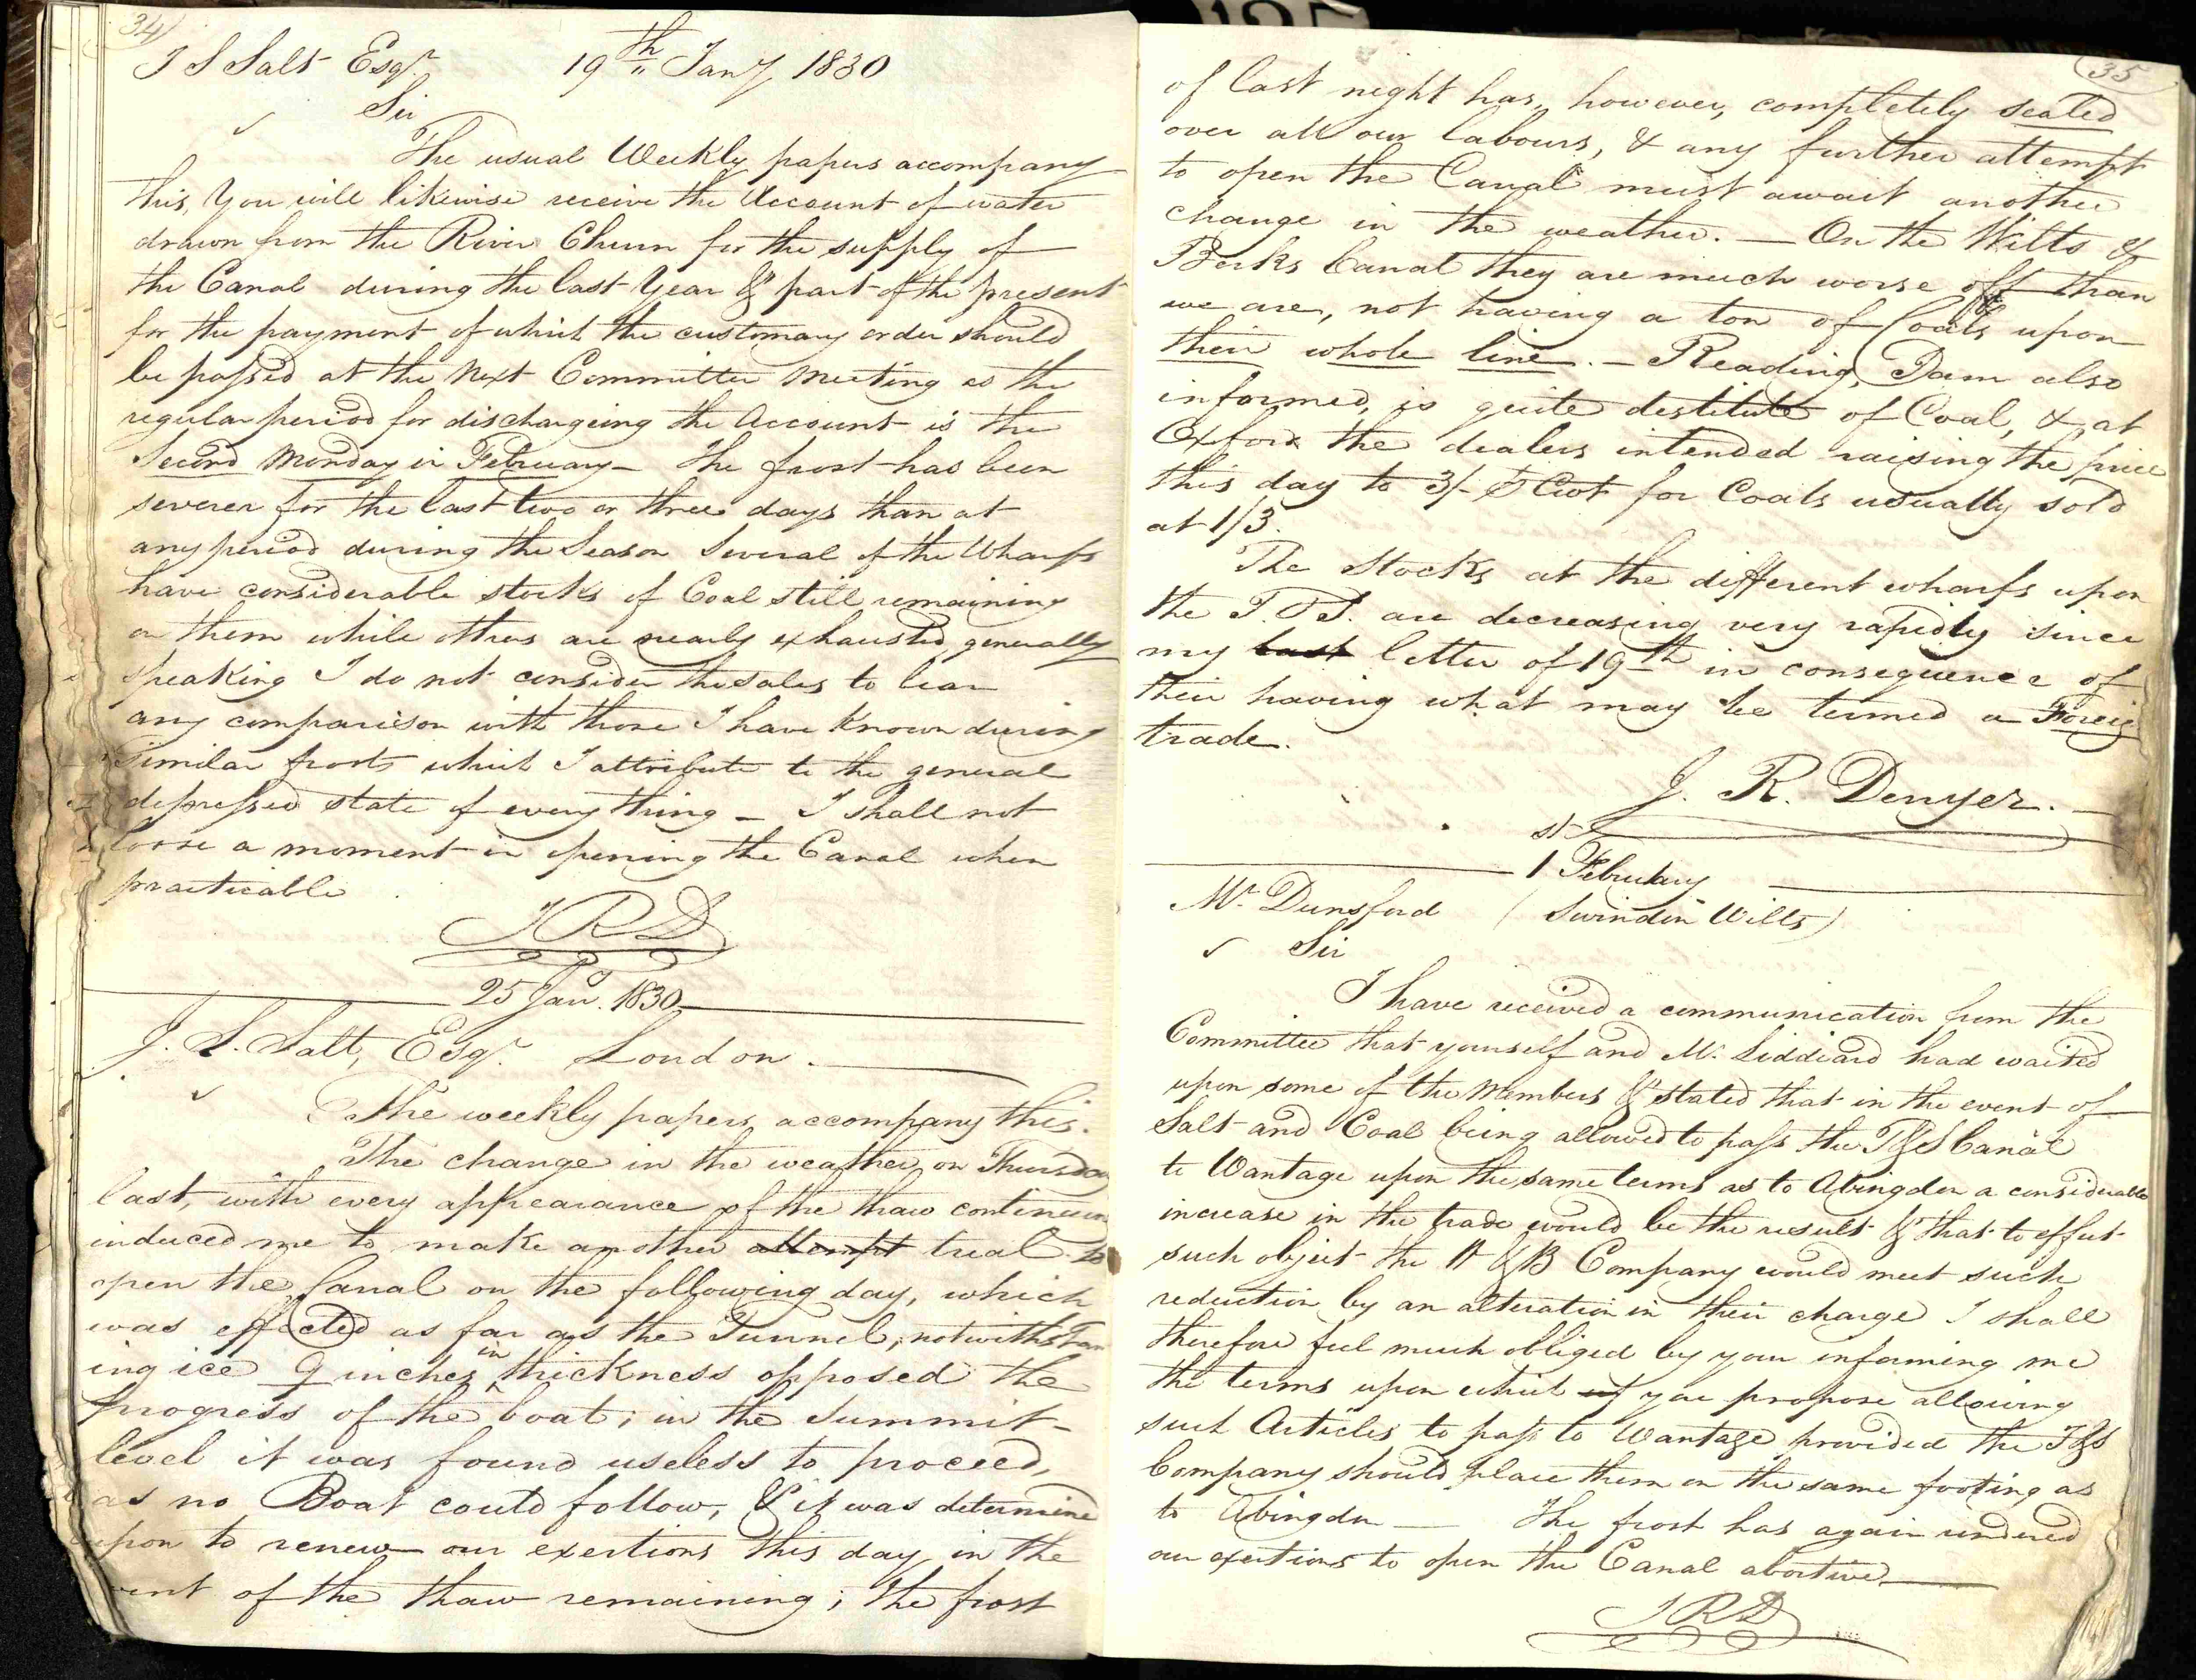 34
J S Salt Esqr. 19th Jany 1830
Sir
The usual Weekly papers accompany
this, You will likewise receive the Account of water
drawn from the River Churn for the supply of
the Canal during the last Year & part of the present
for the payment of which the customary order should
be passed at the Next Committee Meeting as the
regular period for dischargeing the Account is the
Second Monday in February — The frost has been
severer for the last two or three days than at
any period during the Season Several of the Wharfs
have considerable stocks of Coal still remaining
on them while others are nearly exhausted, generally
speaking I do not consider the sales to bear
any comparison with those I have Known during
similar frosts which I attribute to the general
depressed state of every thing — I shall not
loose a moment in opening the Canal when
practicable
JRD
25 Jany. 1830
J. S. Salt, Esqr. London.
The weekly papers accompany this.
The change in the weather on Thursday
last, with every appearance of the thaw continuin
induced me to make another attempt trial to
open the Canal on the following day, which
was effected as far as the Tunnel, notwithstan
ing ice 9 inches in thickness opposed the
progress of the boat; in the Summit
level it was found useless to proceed,
as no Boat could follow, & it was determined
upon to renew our exertions this day in the
vent of the thaw remaining; the frost
35
of last night has, however, completely sealed
over all our labours, & any further attempt
to open the Canal must await another
change in the weather. — On the Wilts &
Berks Canal they are much worse off than
we are, not having a ton of Coals upon
their whole line. — Reading, I am also
informed, is quite destitute of Coal, & at
Oxford the dealers intended raising the price
this day to 3/- P Cwt for Coals usually sold
at 1/3.
The Stocks at the different wharfs upon
the T. & S. are decreasing very rapidly since
my last letter of 19th in consequence of
their having what may be termed a Foreig
trade.
J. R. Denyer.
1st February
Mr Dunsford (Swindon Wilts)
Sir
I have received a communication from the
Committee that yourself and Mr. Liddiard had waited
upon some of the Members & stated that in the event of
Salt and Coal being allowed to pass the T&S Canal
to Wantage upon the same terms as to Abingdon a considerable
increase in the trade would be the result & that to effect
such object the W & B Company would meet such
reduction by an alteration in their charge I shall
therefore feel much obliged by your informing me
the terms upon which you propose allowing
such Articles to pass to Wantage provided the T&S
Company should place them on the same footing as
to Abingdon — The frost has again rendered
our exertions to open the Canal abortive
JRD